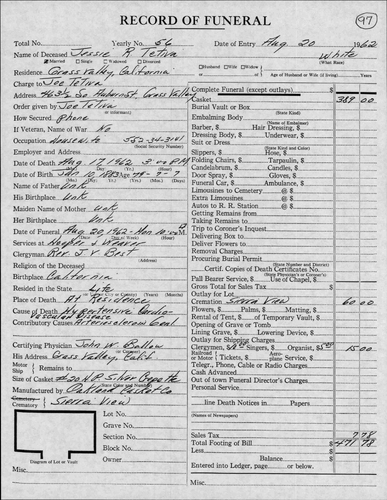 RECORD OF FUNERAL
97
Total No. Yearly No. 56 Date of Entry Aug. 20 1962
Name of Deceased Jessie R Tetiva White
Married Single Widowed Divorced Husband Wife Widow (What Race)
Residence Grass Valley, California of Age of Husband or Wife (if living) Years
Charge to Joe Tetiva
Address Grass Valley
Order given by Joe Tetiva
How Secured Phone
If Veteran, Name of War No
Occupation Housewife
Social Security Number
Employer and Address
Date of Death Aug 17, 1962 3:00 P.M.
Date of Birth Jan 10, 1883
Name of Father Unk
His Birthplace Unk
Maiden Name of Mother Unk
Her Birthplace Unk
Date of Funeral Aug 20 1962
Services at Hooper & Weaver
Clergyman Rev. J. V. Best
Religion of the Deceased
Birthplace California
Resided in the State Life
Place of Death At Residence
Cause of Death Hypertensive Cardio-
vascular Disease
Contributory Causes
Certifying Physician John W. Ballow
His Address Grass Valley, Calif.
Motor
Ship Remains to
Size of Casket
Manufactured by Oakland Casket Co
Cemetery
Crematory Sierra View
Lot No.
Grave No.
Section No.
Block No.
Owner
Diagram of Lot or Vault
Misc.
Complete Funeral (except outlays) $
Casket 389 00
Burial Vault or Box
(State Kind)
Embalming Body
(Name of Embalmer)
Barber, $ Hair Dressing, $
Dressing Body, $ Underwear, $
Suit or Dress
(State Kind and Color)
Slippers, $ Hose, $
Folding Chairs, $ Tarpaulin, $
Candelabrum, $ Candles, $
Door Spray, $ Gloves, $
Funeral Car, $ Ambulance, $
Limousines to Cemetery @ $
Extra Limousines @ $
Autos to R. R. Station @ $
Getting Remains from
Taking Remains to
Trip to Coroner's Inquest
Delivering Box to
Deliver Flowers to
Removal Charges
Procuring Burial Permit
(State Number and District)
Certif. Copies of Death Certificates No.
(State Physician's or Coroner's)
Pall Bearer Service, $ Use of Chapel, $
Gross Total for Sales Tax $
Outlay for Lot
Cremation Sierra View 60 00
Flowers, $ Palms, $ Matting, $
Rental of Tent, $ of Temporary Vault, $
Opening of Grave or Tomb
Lining Grave, $ Lowering Device, $
Outlay for Shipping Charges
Clergymen, $ Singers, $ Organist, $ 15 00
Railroad or Motor $ Tickets, $ Aeroplane Service $
Telegr., Phone, Cable or Radio Charges
Cash Advanced
Out of town Funeral Director's Charges
Personal Service
line Death Notices in Papers
(Names of Newspapers)
Sales Tax 7 78
Total Footing of Bill $ 471 78
Less
Balance $
Entered into Ledger, page or below.
Misc.